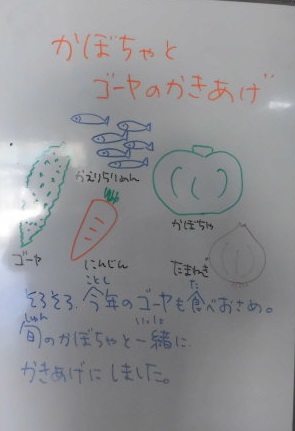 かぼちゃと
ゴーヤのかきあげ
かえりちりめん
かぼちゃ
ゴーヤ
にんじん
たまねぎ
ことし
た
そろそろ、今年のゴーヤも食べおさめ。
しゅん
いっしょ
旬のかぼちゃと一緒に
かきあげにしました。